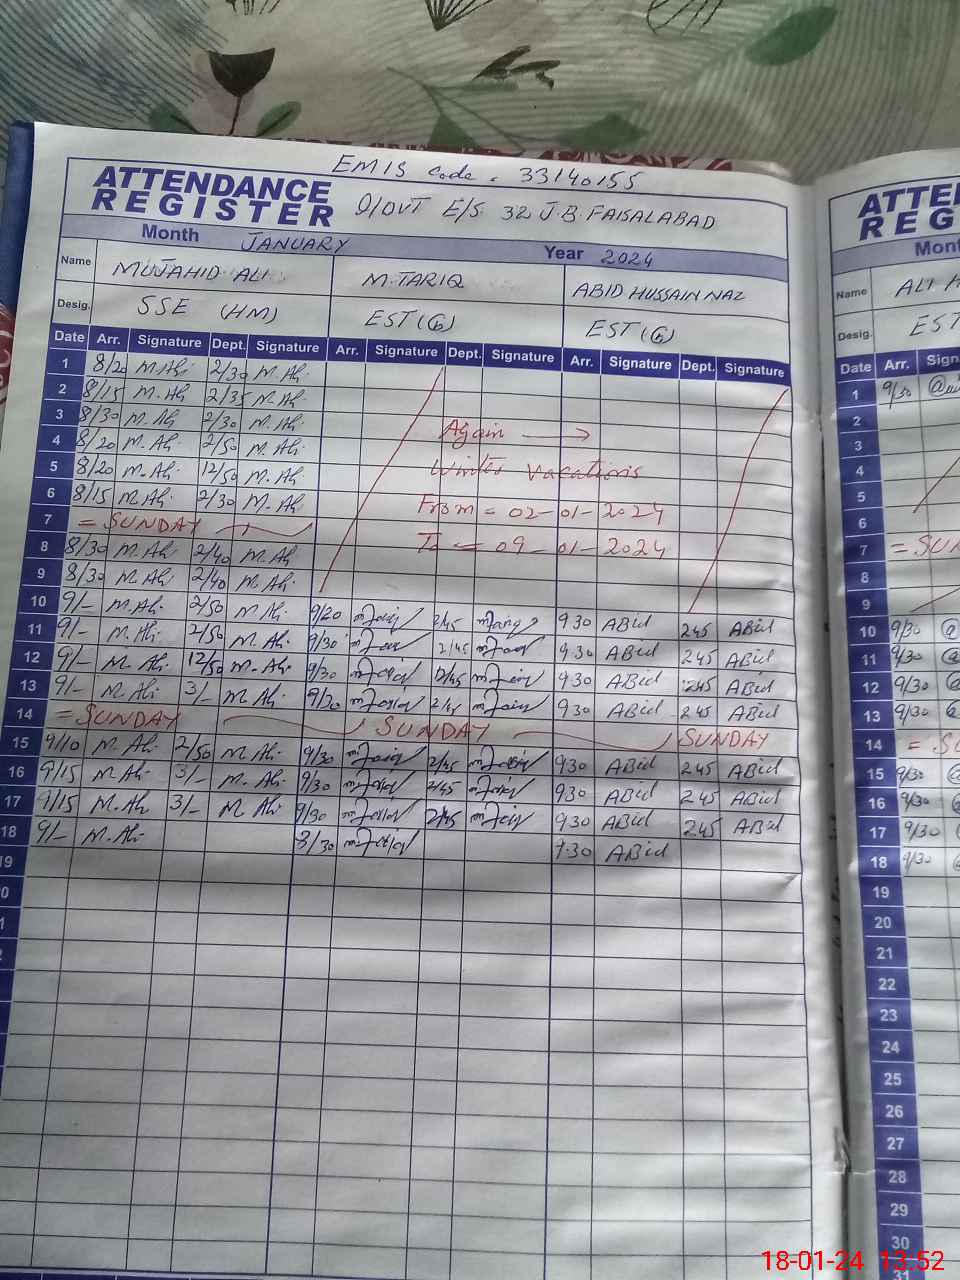 EMIS Code. 33140155
ATTENDANCE REGISTER GOVT E/S 32 J.B. FAISALABAD
Month JANUARY Year 2024
Name MUJAHID ALI M. TARIQ ABID HUSSAIN NAZ
Desig. SSE (HM) EST (G) EST (G)
Date Arr. Signature Dept. Signature Arr. Signature Dept. Signature Arr. Signature Dept. Signature
1 8/20 M.Ali 2/30 M.Ali
2 8/15 M.Ali 2/35 M.Ali
3 8/30 M.Ali 2/30 M.Ali Again →
4 8/20 M.Ali 2/50 M.Ali Winter vacations
5 8/20 M.Ali 12/50 M.Ali From = 02-01-2024
6 8/15 M.Ali 2/30 M.Ali To = 09-01-2024
7 = SUNDAY
8 8/30 M.Ali 2/40 M.Ali
9 8/30 M.Ali 2/40 M.Ali
10 9/- M.Ali 2/50 M.Ali 9/20 2/45 9 30 ABid 2 45 ABid
11 9/- M.Ali 2/50 M.Ali 9/30 2/45 9 30 ABid 2 45 ABid
12 9/- M.Ali 12/50 M.Ali 9/30 12/45 9 30 ABid 2 45 ABid
13 9/- M.Ali 3/- M.Ali 9/30 2/45 9 30 ABid 2 45 ABid
14 = SUNDAY SUNDAY SUNDAY
15 9/10 M.Ali 2/50 M.Ali 9/30 2/45 9 30 ABid 2 45 ABid
16 9/15 M.Ali 3/- M.Ali 9/30 2/45 9 30 ABid 2 45 ABid
17 9/15 M.Ali 3/- M.Ali 9/30 2/45 9 30 ABid 2 45 ABid
18 9/- M.Ali /30 ABid
19
ATTE
REG
Mont
Name ALI H
Desig. EST
Date Arr. Sign
1 9/30
2
3
4
5
6
7 = SUN
8
9
10 9/30
11 9/30
12 9/30
13 9/30
14 = SU
15 9/30
16 9/30
17 9/30
18 9/30
19
20
21
22
23
24
25
26
27
28
29
30
31
18-01-24 13:52